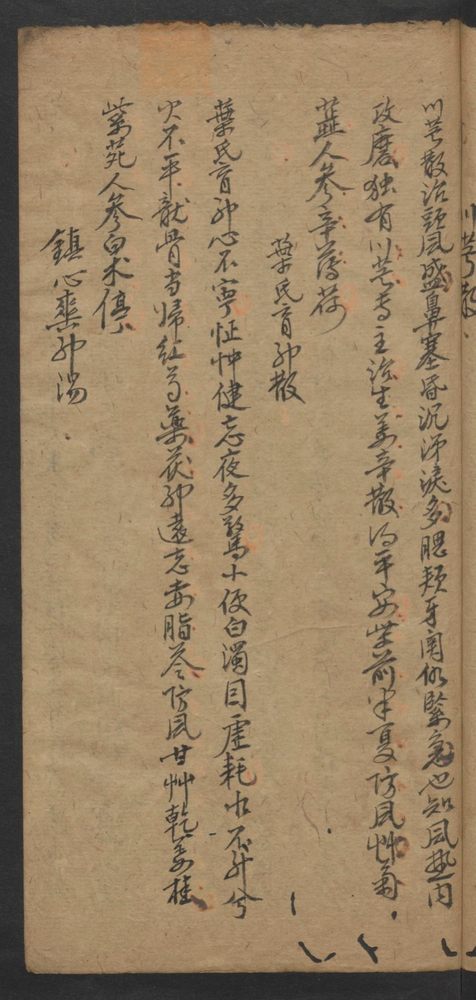 川芎散
川芎散治頭風盛鼻塞昏沉涕淚多腮頬牙関似緊急也知風熱内
攻磨独有川芎专主治生姜辛散得平安柴前半夏防風草菊
人参辛薄荷
葉氏育神散
葉氏育神心不寧怔忡健忘夜多驚小便白濁目虛耗水不升兮
火不平龍骨当歸紅芍藥茯神遠志五脂苓防風甘草乾姜桂
紫苑人参白术停
鎮心爽神湯